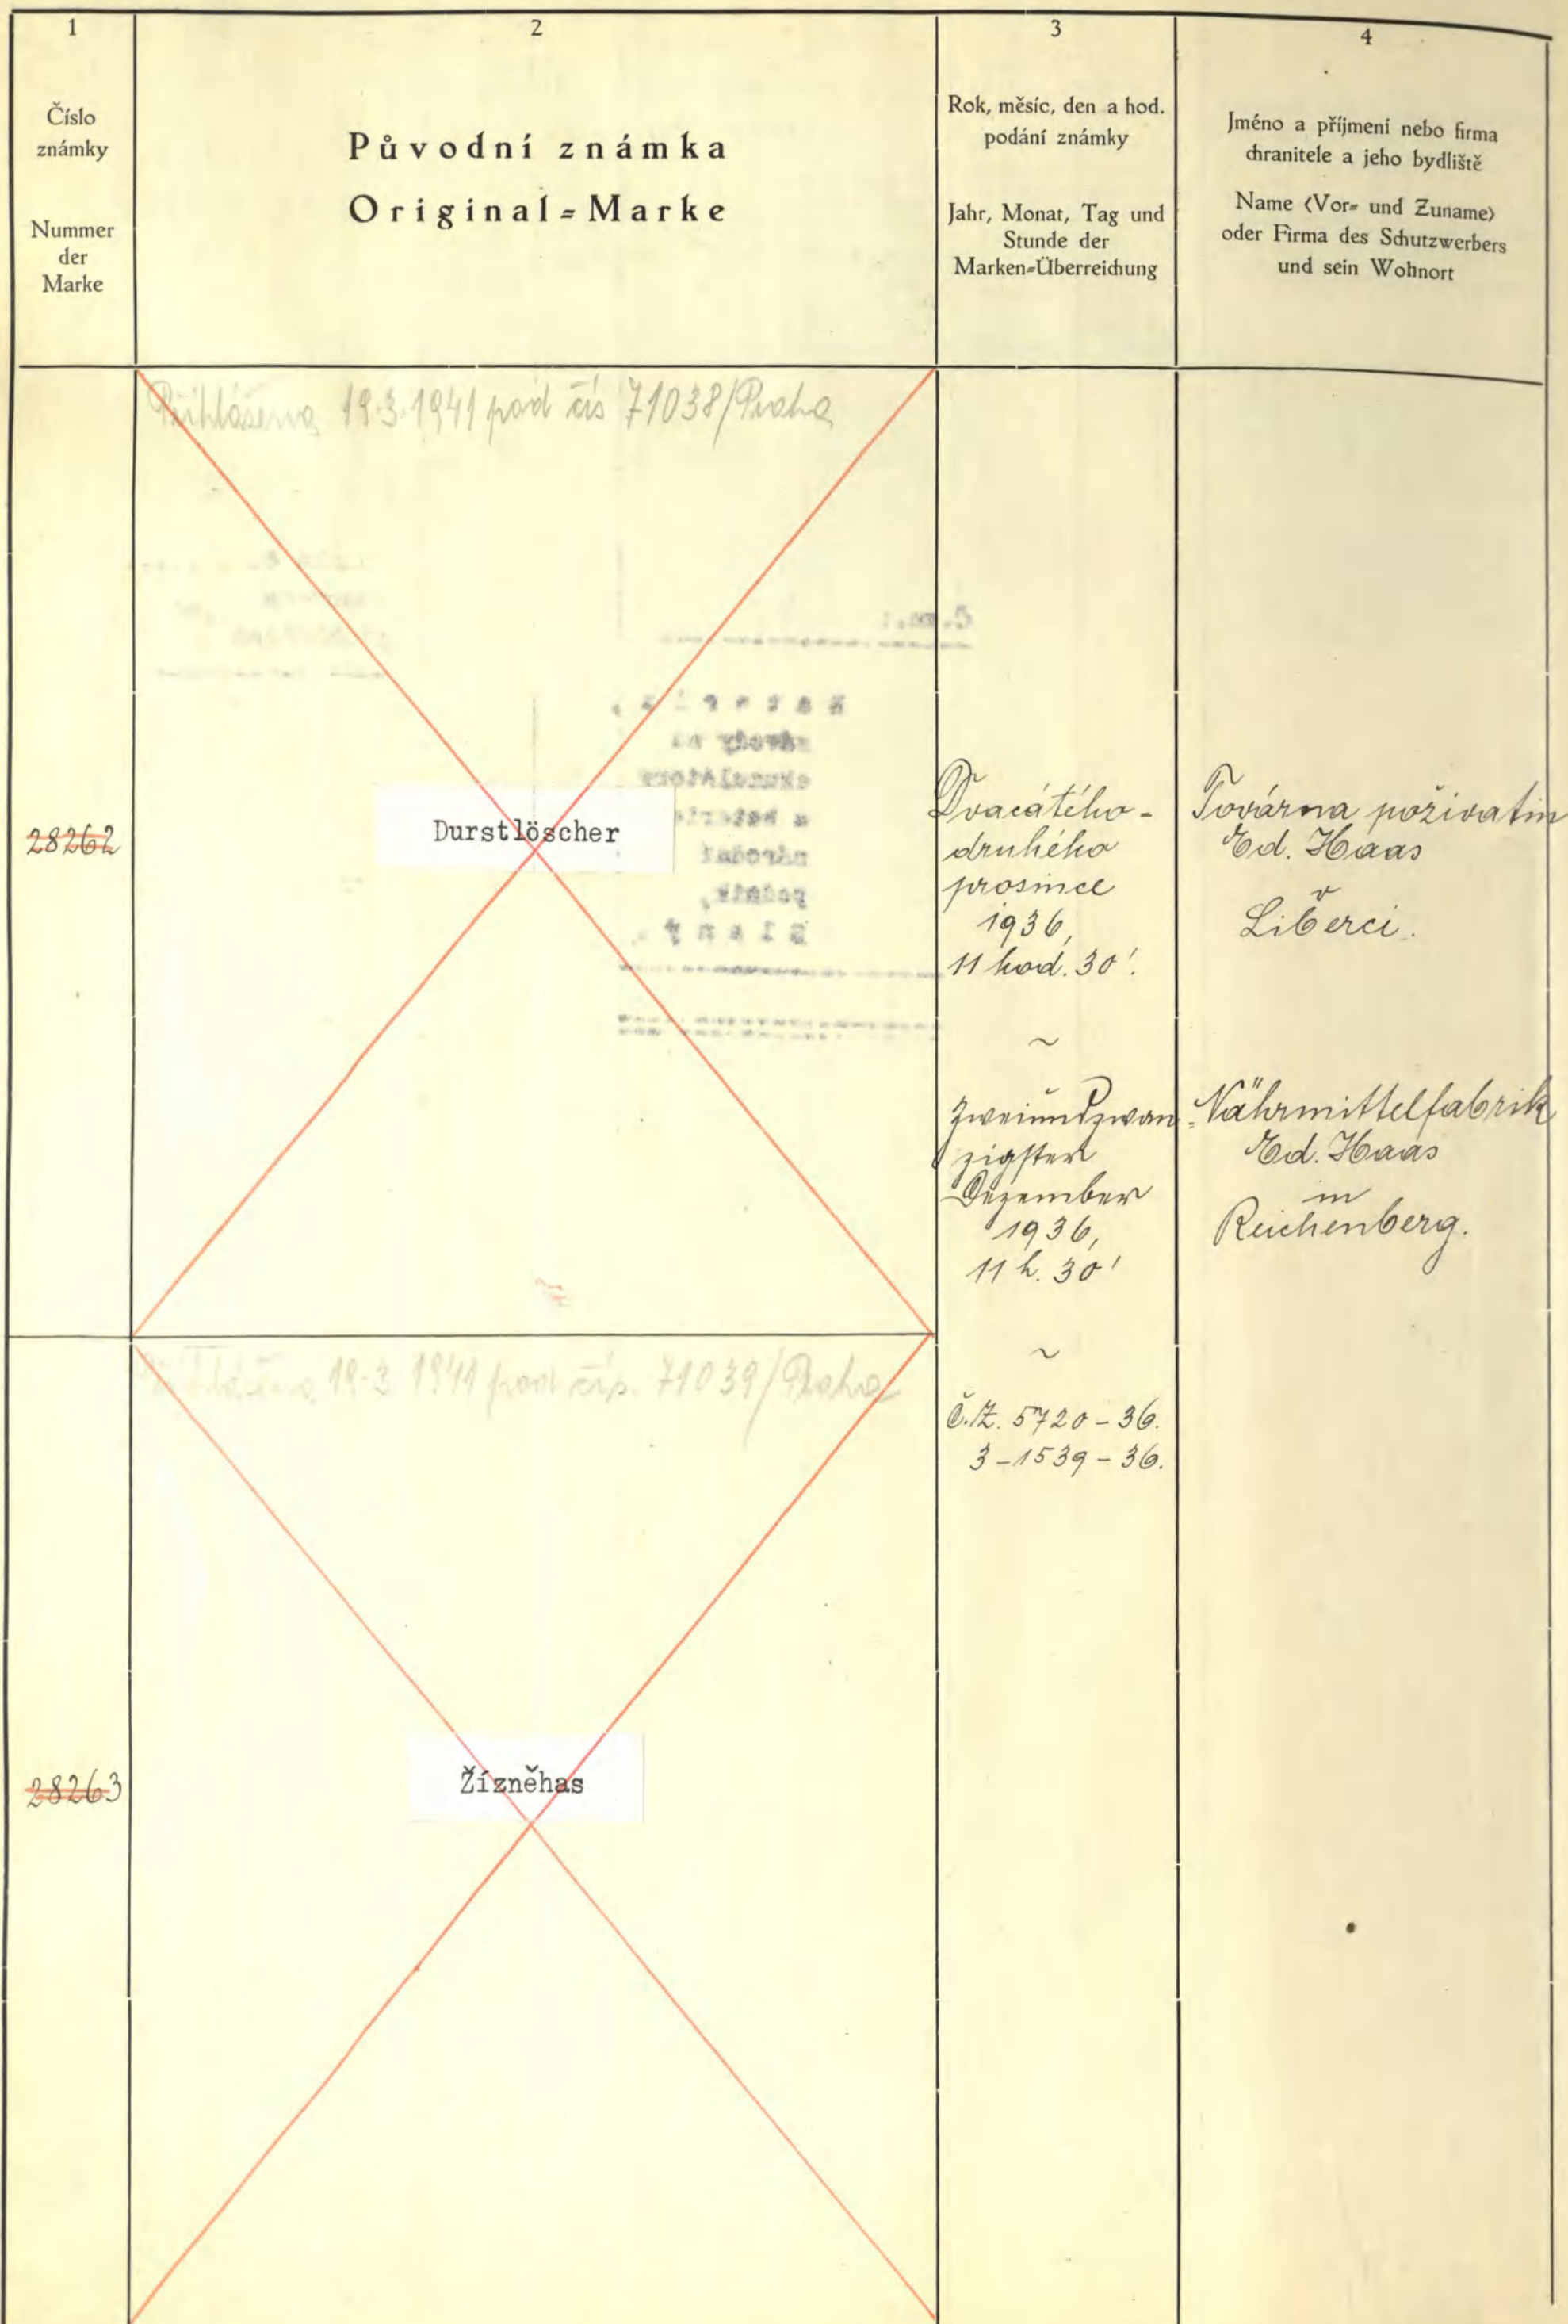 1
Číslo
známky
Nummer
der
Marke
2
Původní známka
Original=Marke
3
Rok, měsíc, den a hod.
podání známky
Jahr, Monat, Tag und
Stunde der
Marken=Überreichung
4
Jméno a příjmení nebo firma
chranitele a jeho bydliště
Name (Vor= und Zuname)
oder Firma des Schutzwerbers
und sein Wohnort
Přihlášena 19.3.1941 pod čís 71038/Praha
28262
Durstlöscher
Dvacátého-
druhého
prosince
1936,
11 hod. 30'.
~
Zweiundzwan
zigster
Dezember
1936,
11 h. 30'
~
Č.Z. 5720-36.
3-1539-36.
Továrna poživatin
Ed. Haas
v
Liberci.
Nährmittelfabrik
Ed. Haas
in
Reichenberg.
Přihlášena 19.3 1941 pod čís. 71039/Praha
28263
Žízněhas